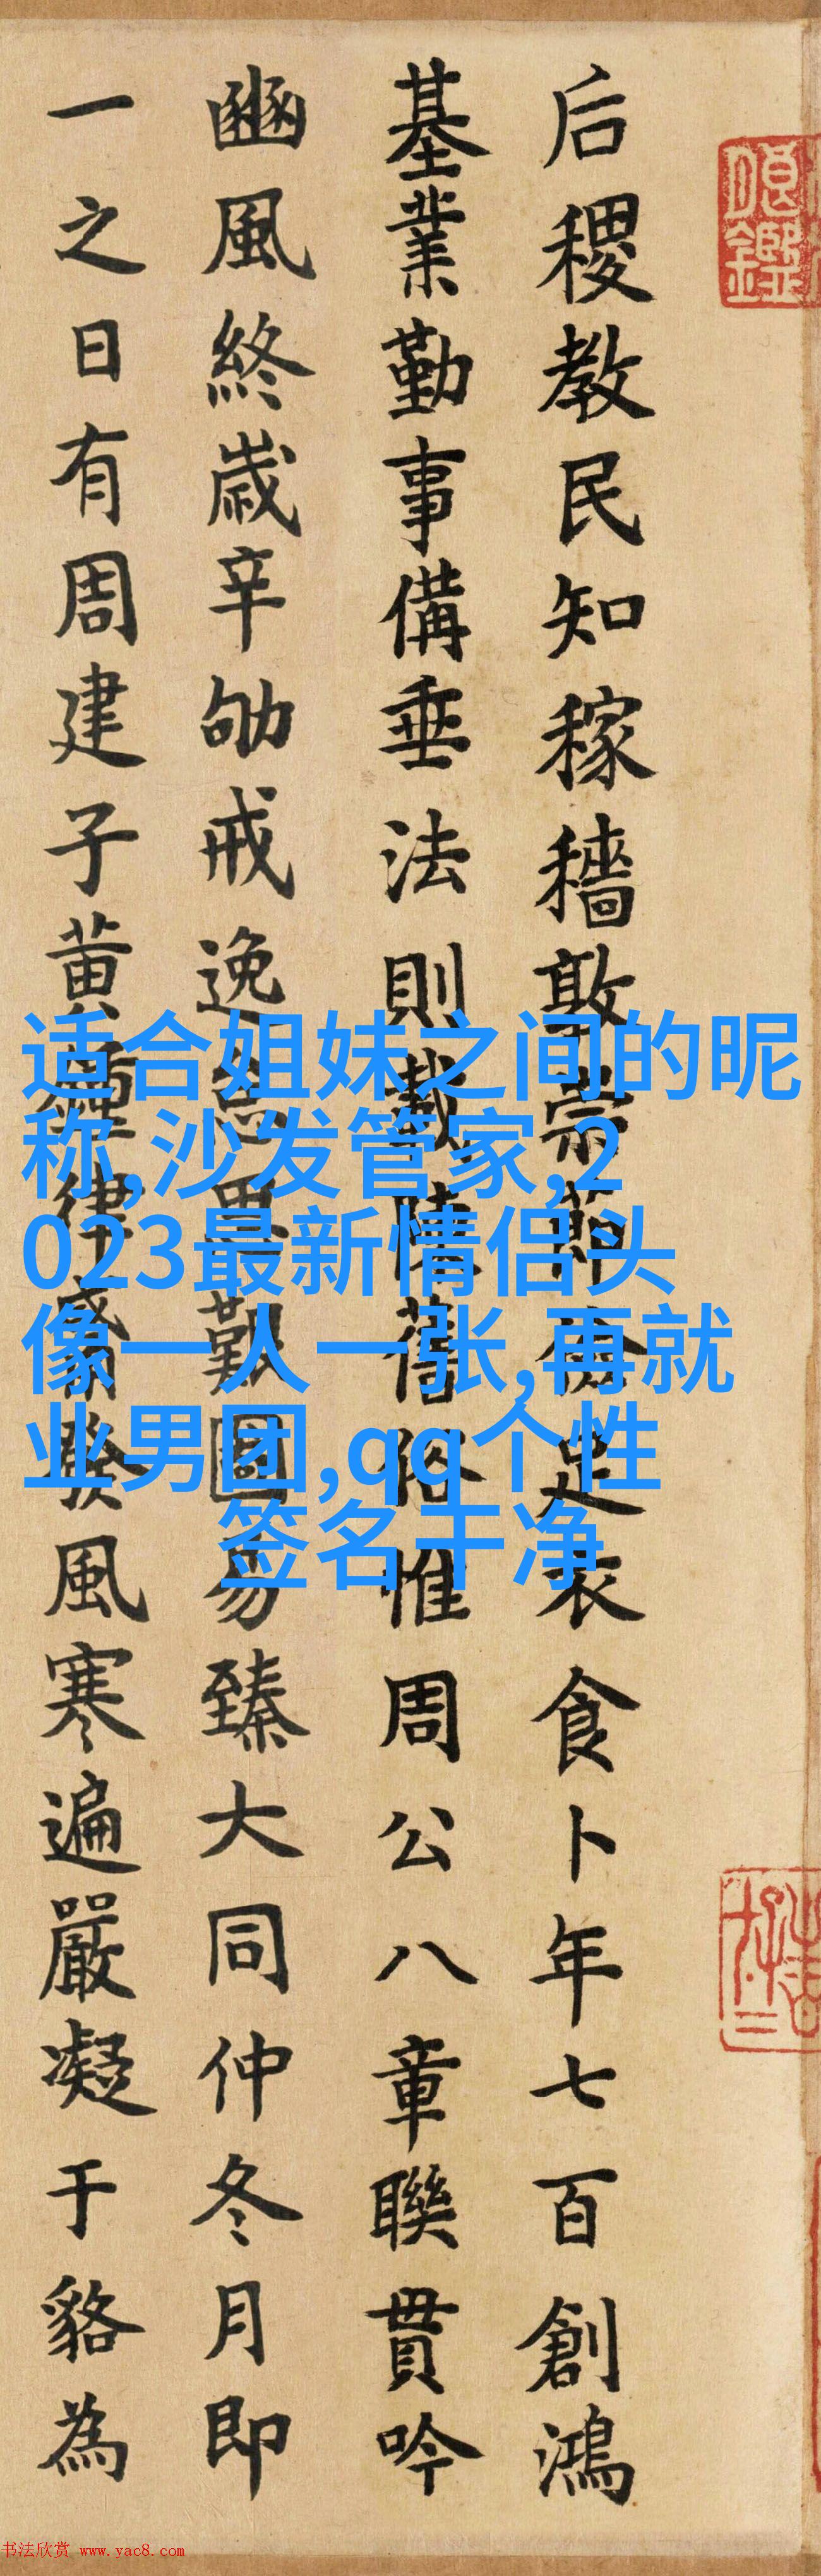 后稷教民知稼穡敦崇節儉足衣食卜年七百創鴻
基業勤事備垂法則載陳舊俗惟周公八章聯貫吟
豳風終歲辛劬戒逸思艱圖易臻大同仲冬月即
一之日有周建子黃鍾律觱發風寒遍嚴凝于貉為
适合姐妹之间的昵
称,沙发管家,2
023最新情侣头
像一人一张,再就
业男团,qq个性
签名干净
书法欣赏 www.yac8.com